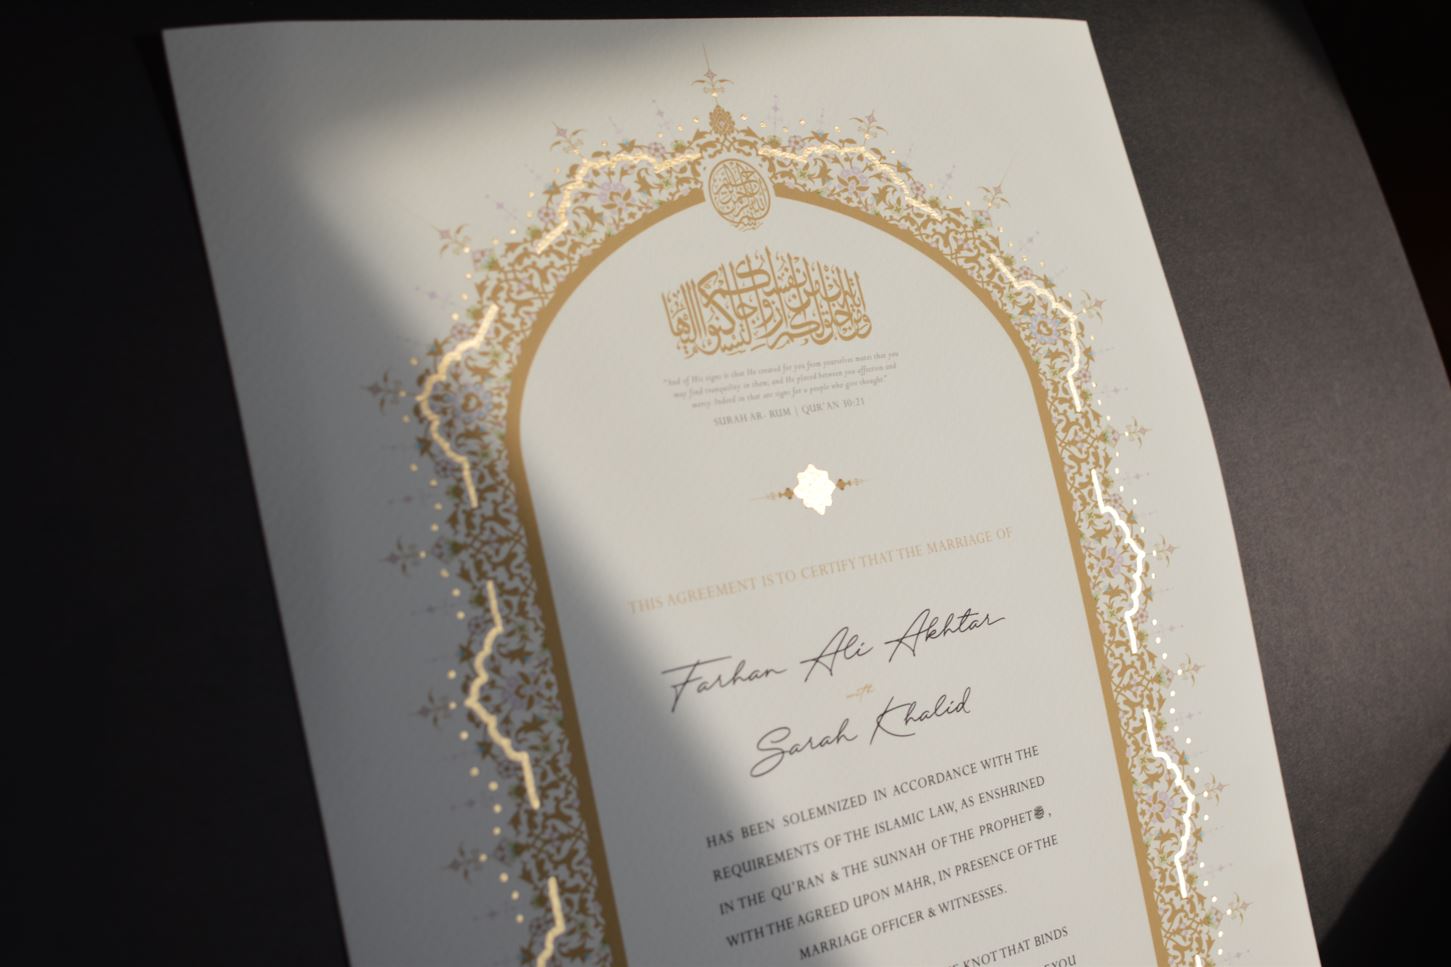 بسم الله الرحمن الرحيم
ومن آياته أن خلق لكم من أنفسكم أزواجا لتسكنوا إليها
"And of His signs is that He created for you from yourselves mates that you
may find tranquility in them; and He placed between you affection and
mercy. Indeed in that are signs for a people who give thought."
SURAH AR- RUM | QUR'AN 30:21
THIS AGREEMENT IS TO CERTIFY THAT THE MARRIAGE OF
Farhan Ali Akhtar
with
Sarah Khalid
HAS BEEN SOLEMNIZED IN ACCORDANCE WITH THE
REQUIREMENTS OF THE ISLAMIC LAW, AS ENSHRINED
IN THE QU'RAN & THE SUNNAH OF THE PROPHET ﷺ,
WITH THE AGREED UPON MAHR, IN PRESENCE OF THE
MARRIAGE OFFICER & WITNESSES.
KNOT THAT BINDS
YOU